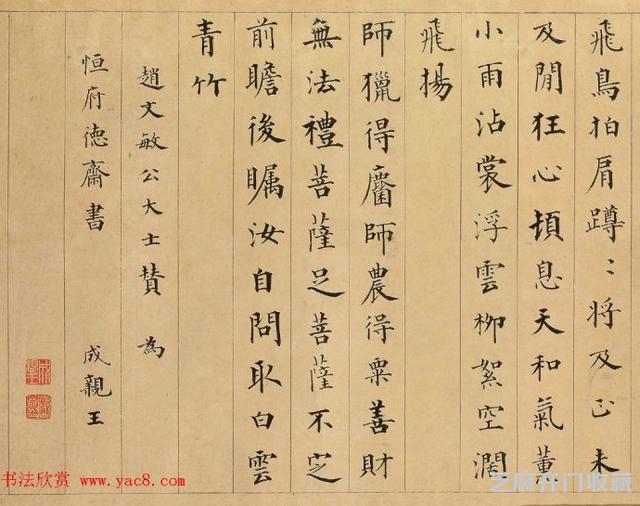 飛鳥拍肩蹲〻將及正未
及閒狂心頓息天和氣薰
小雨沾裳浮雲柳絮空濶
飛揚
師獵得麕師農得粟善財
無法禮菩薩足菩薩不定
前瞻後矚汝自問取白雲
青竹
趙文敏公大士贊 為
恒府德齋書 成親王
书法欣赏 www.yac8.com
芝麻开门收藏